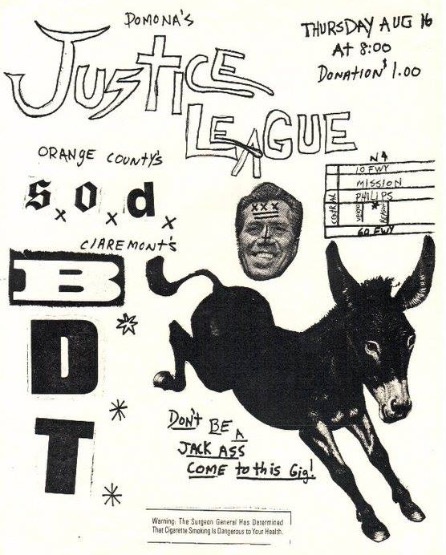 POMONA'S
JUSTICE
LEAGUE
THURSDAY AUG 16
AT 8:00
DONATION $1.00
ORANGE COUNTY'S
S.O.d.
x x x
CLAREMONT'S
B
D
T
XXX
N↑
10 FWY
MISSION
PHILIPS
60 FWY
DON'T BE A
JACK ASS
COME to this Gig!
Warning: The Surgeon General Has Determined
That Cigarette Smoking Is Dangerous to Your Health.